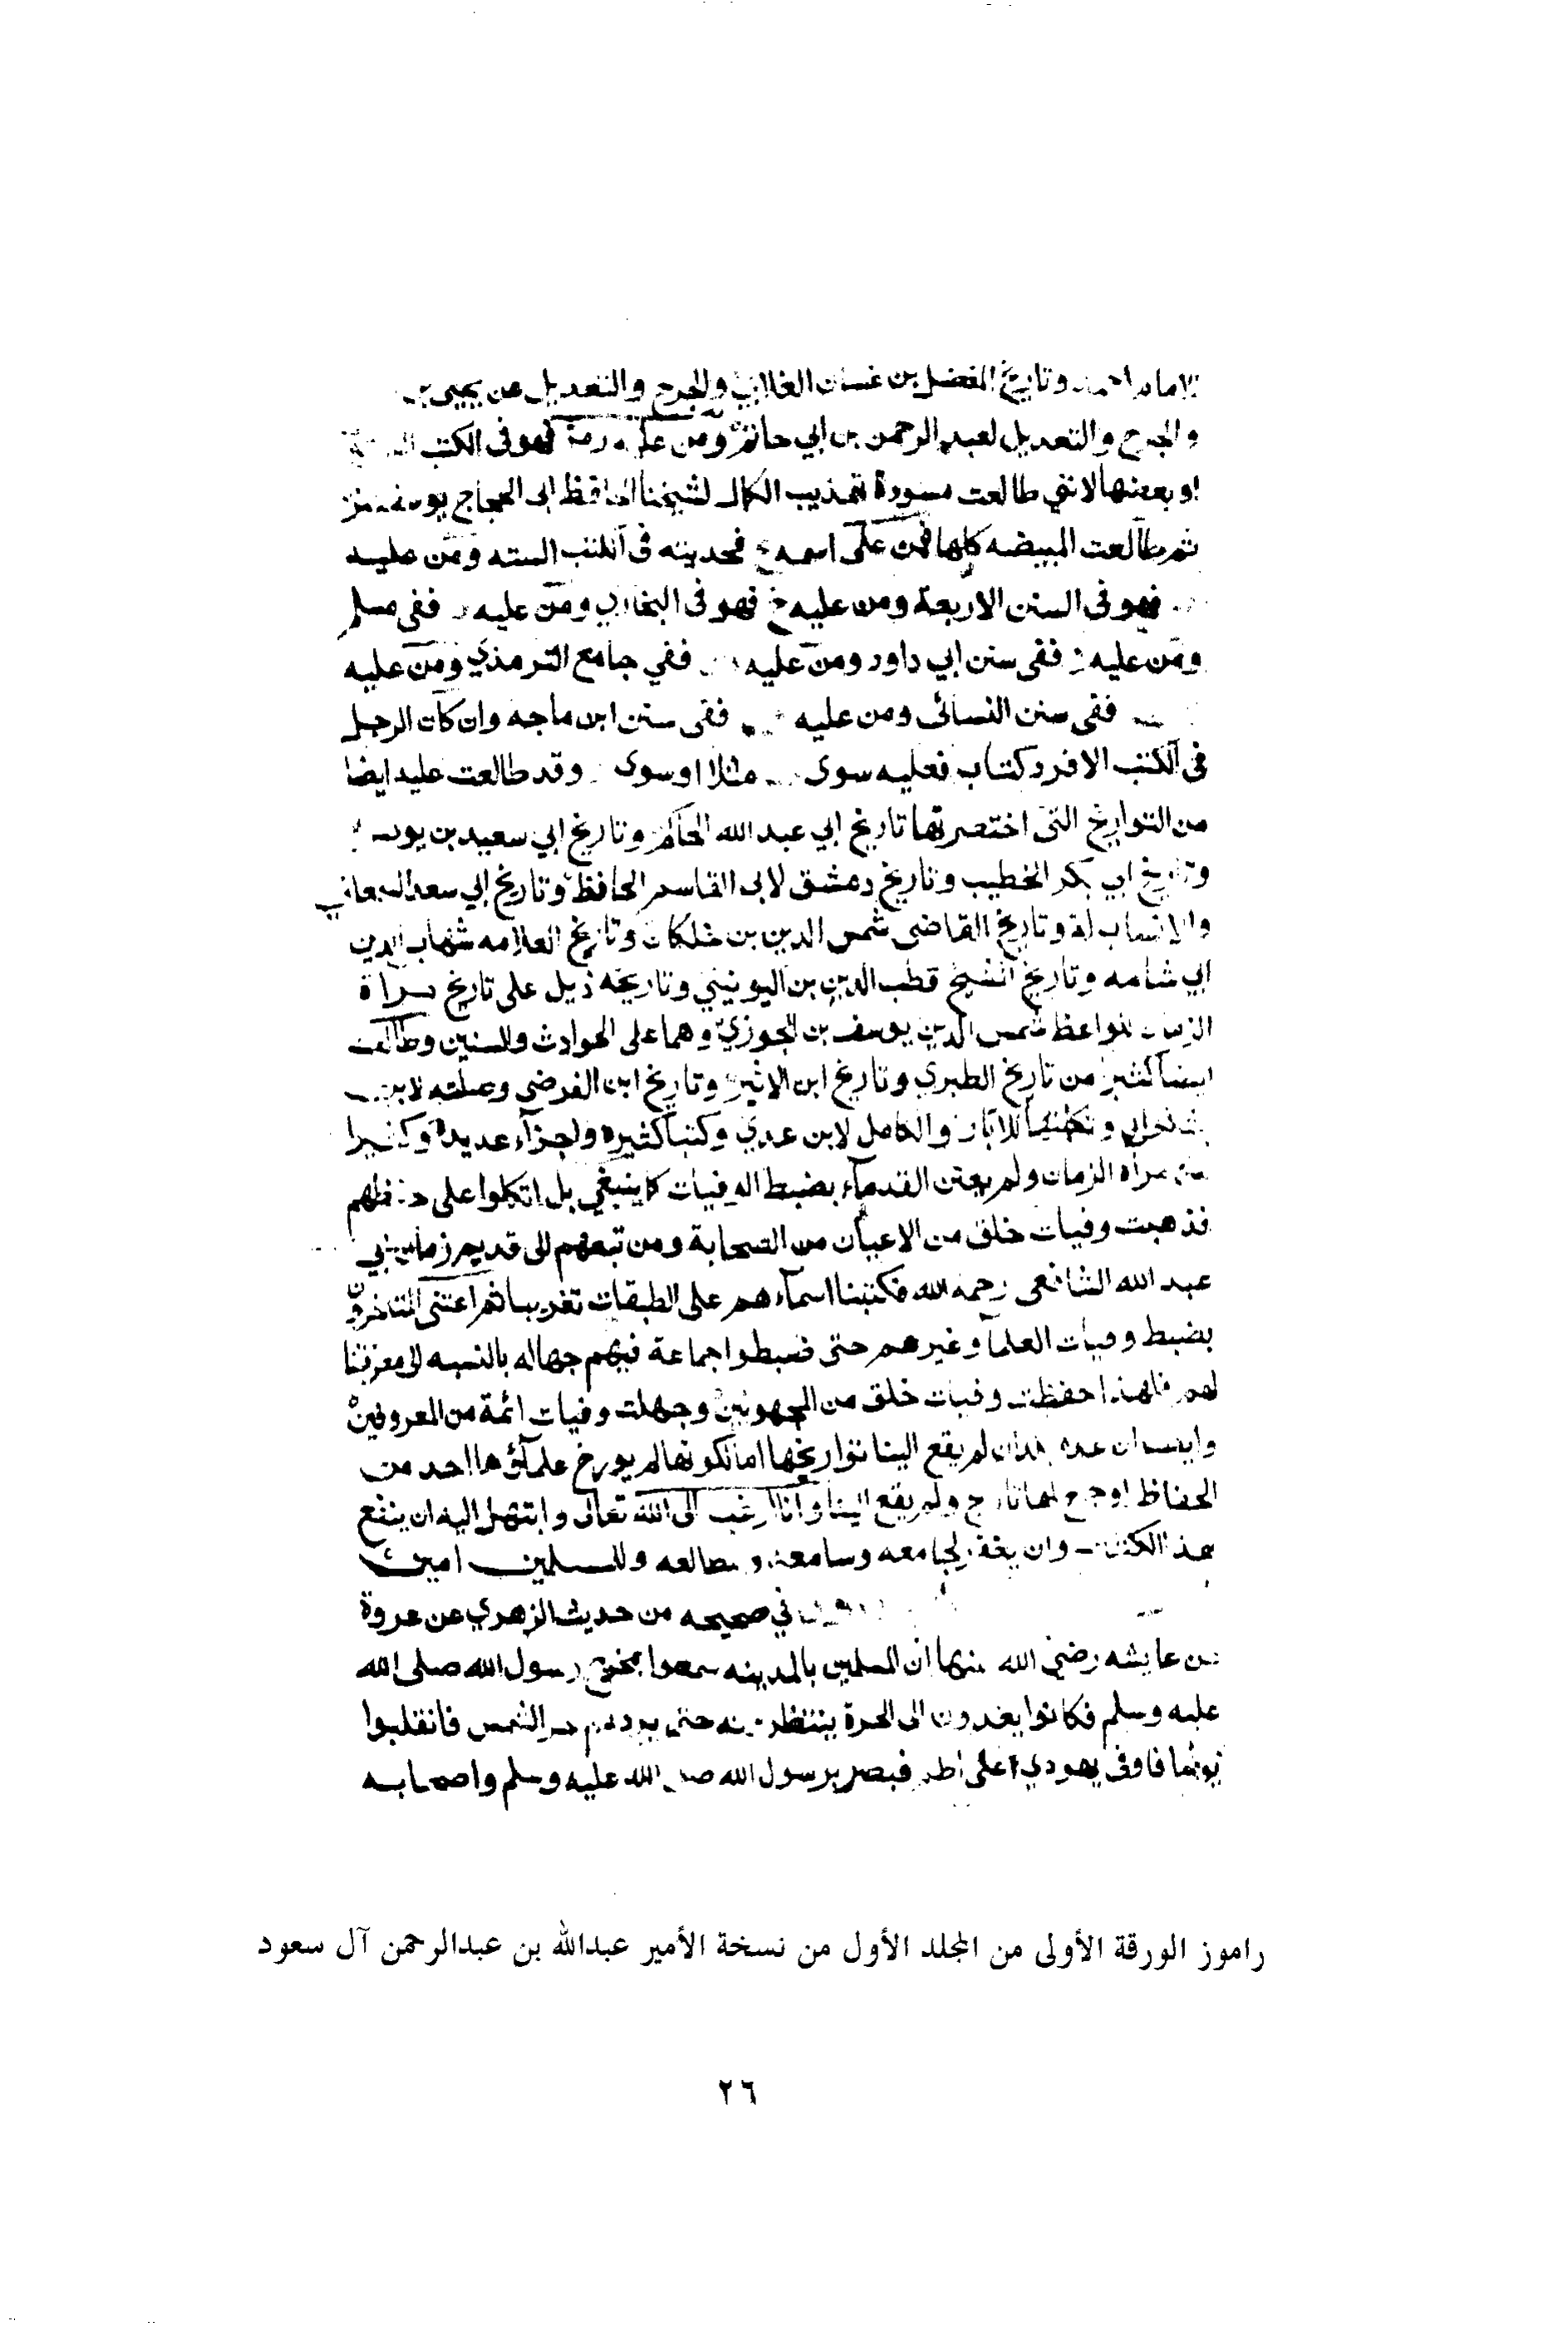 الامام احمد وتاريخ المفضل بن غسان الغلابي والجرح والتعديل عن يحيى بن
والجرح والتعديل لعبد الرحمن بن ابي حاتم ومن عليه رمز فهو في الكتب
او بعضها لانني طالعت مسودة تهذيب الكمال لشيخنا الحافظ ابي الحجاج يوسف
ثم طالعت المبيضه كلها فمن على اسمه ع فحديثه في الكتب السته ومن عليه
فهو في السنن الاربعة ومن عليه خ فهو في البخاري ومن عليه ففي مسلم
ومن عليه د ففي سنن ابي داود ومن عليه ففي جامع الترمذي ومن عليه
ففي سنن النسائي ومن عليه ففي سنن ابن ماجه وان كان الرجل
في الكتب الا فرد كتاب فعليه سوى مثلا او سوى وقد طالعت عليه ايضا
من التواريخ التي اختصرتها تاريخ ابي عبد الله الحاكم وتاريخ ابي سعيد بن يونس
وتاريخ ابي بكر الخطيب وتاريخ دمشق لابي القاسم الحافظ وتاريخ ابي سعد السمعاني
والانساب له وتاريخ القاضي شمس الدين بن خلكان وتاريخ العلامه شهاب الدين
ابي شامه وتاريخ الشيخ قطب الدين بن اليونيني وتاريخه ذيل على تاريخ مرآة
الزمان للواعظ شمس الدين يوسف بن الجوزي وهما على الحوادث والسنين وطالعت
ايضا كثيرا من تاريخ الطبري وتاريخ ابن الاثير وتاريخ ابن الفرضي وصلته لابن
بشكوال وتكملتها للابار والكامل لابن عدي وكتبا كثيره واجزآء عديدة وكثيرا
من مرآة الزمان ولم يعتن القدمآء بضبط الوفيات كما ينبغي بل اتكلوا على حفظهم
فذهبت وفيات خلق من الاعيان من الصحابة ومن تبعهم الى قديم زمان ابي
عبد الله الشافعي رحمه الله فكتبنا اسمآءهم على الطبقات تقريبا ثم اعتنى المتاخرون
بضبط وفيات العلمآ وغيرهم حتى ضبطوا جماعة فيهم جهاله بالنسبه لمعرفتنا
لهم فلهذا حفظت وفيات خلق من المجهولين وجهلت وفيات ائمة من المعروفين
وايضا فان عدة بلدان لم يقع الينا تواريخها اما لكونها لم يورخ علمآؤها احد من
الحفاظ او جمع لها تاريخ ولم يقع الينا وانا ارغب الى الله تعالى وابتهل اليه ان ينفع
بهذا الكتاب وان يغفر لجامعه وسامعه ومطالعه وللمسلمين امين
في صحيحه من حديث الزهري عن عروة
عن عايشه رضي الله عنها ان المسلمين بالمدينه سمعوا بمخرج رسول الله صلى الله
عليه وسلم فكانوا يغدون الى الحرة ينتظرونه حتى يردهم حر الشمس فانقلبوا
يوما فاوفى يهودي على اطم فبصر برسول الله صلى الله عليه وسلم واصحابه
راموز الورقة الأولى من المجلد الأول من نسخة الأمير عبدالله بن عبدالرحمن آل سعود
٢٦